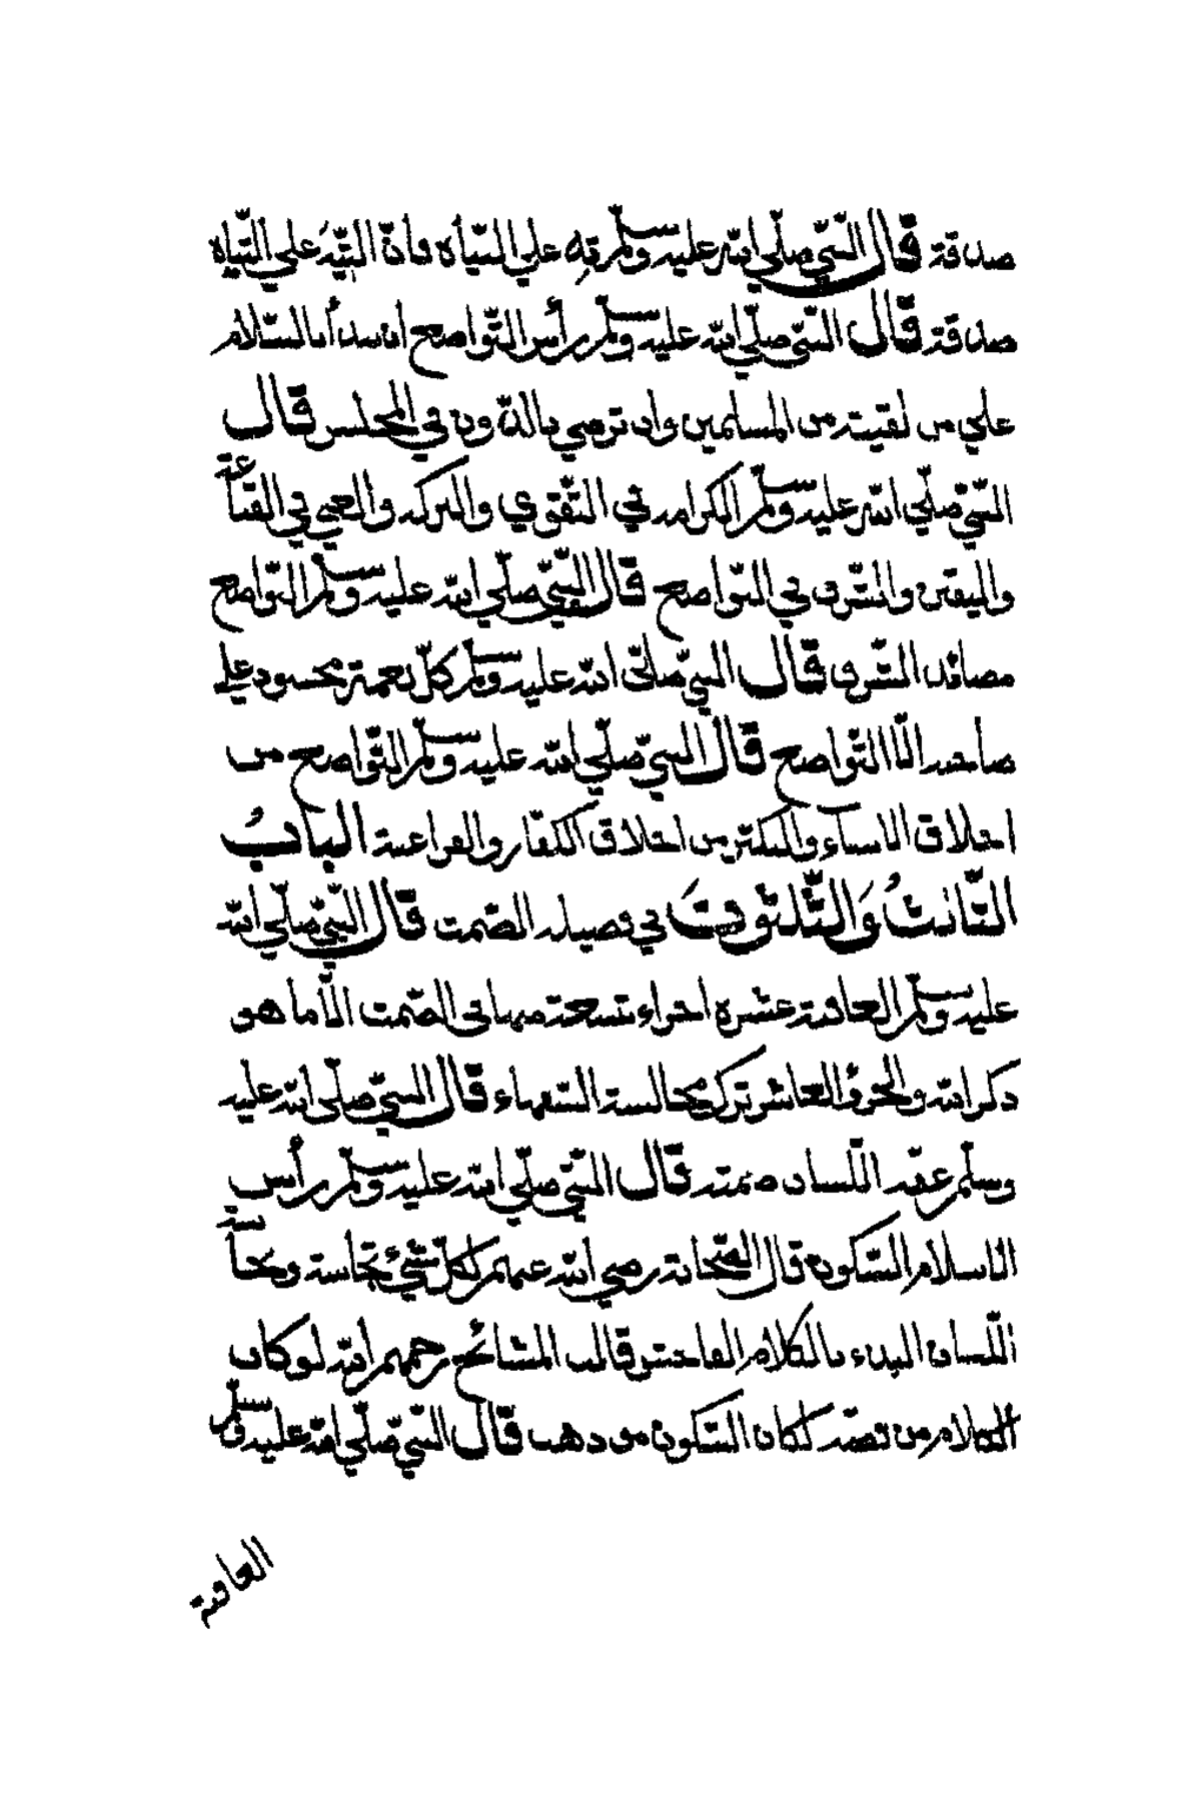 صدقة قال النبي صلي الله عليه وسلم ته علي التياه فانّ التيه علي التياه
صدقة قال النبي صلي الله عليه وسلم رأس التواضع ان تبدأ بالسّلام
علي من لقيت من المسلمين وان ترضي بالدّون في المجلس قال
النبي صلي الله عليه وسلم الكرامة في التّقوي والبركة والغني في القناعة
واليقين والشّرف في التواضع قال النبي صلي الله عليه وسلم التواضع
مصائد الشّرف قال النبي صلي الله عليه وسلم كلّ نعمة محسود علي
صاحبه الّا التّواضع قال النبي صلي الله عليه وسلم التّواضع من
اخلاق الانبياء والتكبّر من اخلاق الكفّار والفراعنة البابُ
الثّاني والثّلثون في فضيلة الصّمت قال النبي صلي الله
عليه وسلم العافية عشرة اجزاء تسعة منها في الصّمت الّا ما هو
ذكر الله والجزؤ العاشر ترك مجالسة السّفهاء قال النبي صلي الله عليه
وسلم عفّة اللّسان صمته قال النبي صلي الله عليه وسلم رأس
الاسلام السّكون قال الصّحابة رضي الله عنهم لكلّ شيئ نجاسة ونجاسة
اللّسان البذء بالكلام الفاحش قالت المشائخ رحمهم الله لو كان
الكلام من فضّة لكان السّكون من ذهب قال النبي صلي الله عليه وسلم
العافية